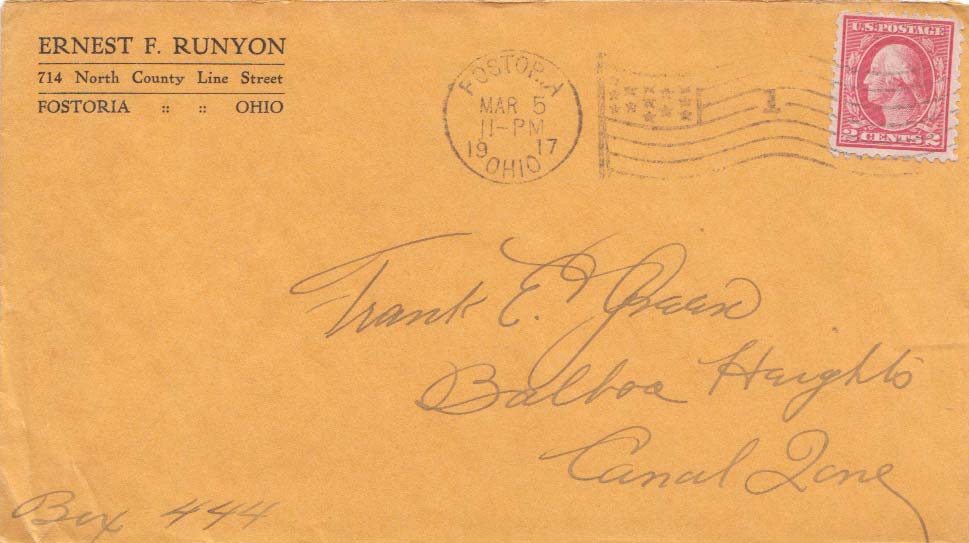 ERNEST F. RUNYON
714 North County Line Street
FOSTORIA :: :: OHIO
FOSTORIA
MAR 5
11-PM
19 17
OHIO
1
U.S. POSTAGE
2 CENTS 2
Frank E. Green
Balboa Heights
Canal Zone
Box 444